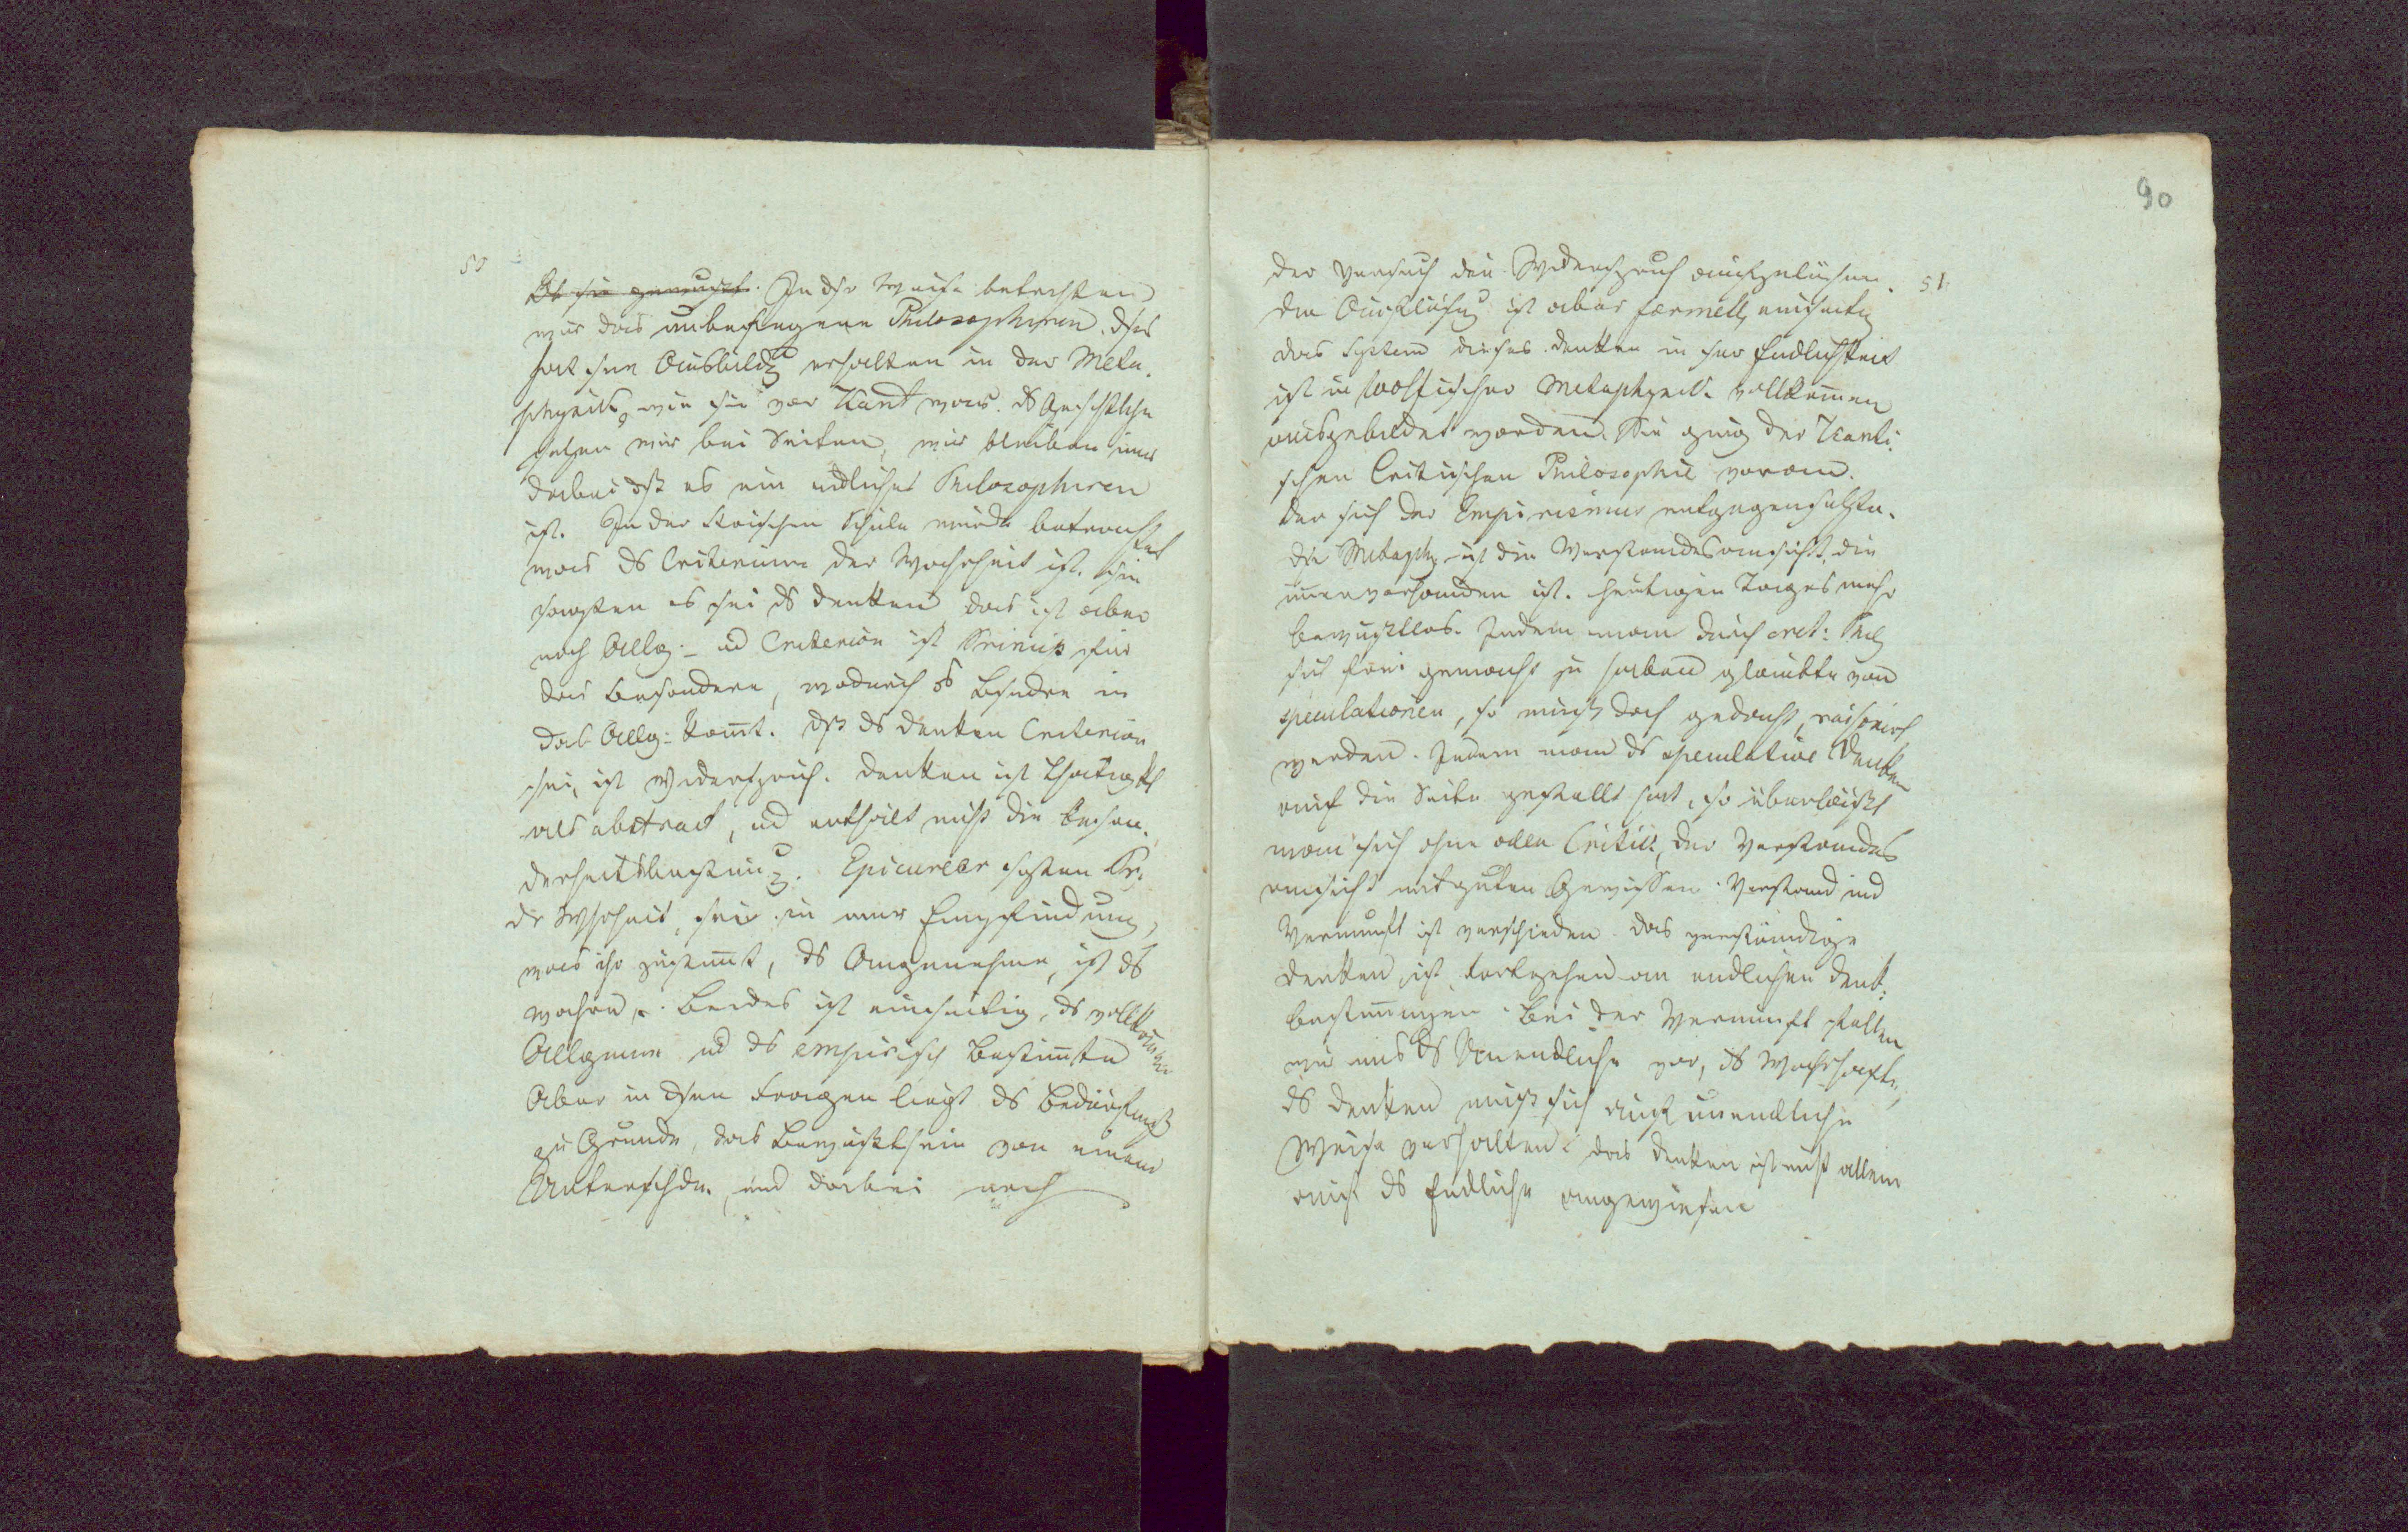 50
Ob sie gemacht. In dsr Weise betrachten
wir das unbefangene Philosophiren. dses
hat seine Ausbildg erhalten in der Meta-
physik, wie sie vor Kant war. ds Geschichtliche
setzen wir bei Seiten, wir bleiben nur
dabei dß es ein endliches Philosophiren
ist. In der stoischen Schule wurde betrachtet
was ds Criterium der Wahrheit ist. Sie
sagten es sei ds denken das ist aber
noch Allg: – ud Criterion ist für
das Besondere, wodurch ds Besondre in
das Allg: kommt. dß ds denken Criterion
sei, ist Widerspruch. denken ist Thätigkt
als abstract, ud enthält nicht die Beson-
derheit Bestimg. Epicureer sagten Kr.
dr Wahrheit, sei in einer Empfindung,
was ihr zukommt, ds Angenehme, ist ds
wahre. Beides ist einseitig, ds vollkomne
Allgemeine ud ds empirisch Bestimmte
Aber in dsen Fragen liegt ds Bedürfniß
zu Grunde, das Bewußtsein von einem
Unterschde. und dabei auch
90
der Versuch den Widerspruch aufzulösen. 51.
die Auflösug ist aber formell, einseitig
das System dieses denken in sr Endlichkeit
ist in Wolfischer Metaphysik vollkommen
ausgebildet worden. Sie ging der Kanti-
schen Critischen Philosophie voran.
der sich der Empirismus entgegensetzte.
die Metaph. ist die Verstandesansicht, die
immer vorhanden ist. heutigen Tages mehr
bewußtlos. Indem man durch crit: Phil
sich frei gemacht zu haben glaubte von
speculationen, so muß doch gedacht, raisonirt
werden. Indem man ds speculative Denken
auf die Seite gestellt hat, so überläßt
man sich ohne alle Critik, der Verstandes
ansicht mit gutem Gewissen. Verstand und
Vernunft ist verschieden. das verständige
denken ist fortgehen an endlichen denk-
bestimmungen. Bei der Vernunft stellen
wir uns ds Unendliche vor, ds Wahrhafte,
ds denken muß sich auf unendliche
Weise verhalten. das denken ist nicht allein
auf ds Endliche angewiesen